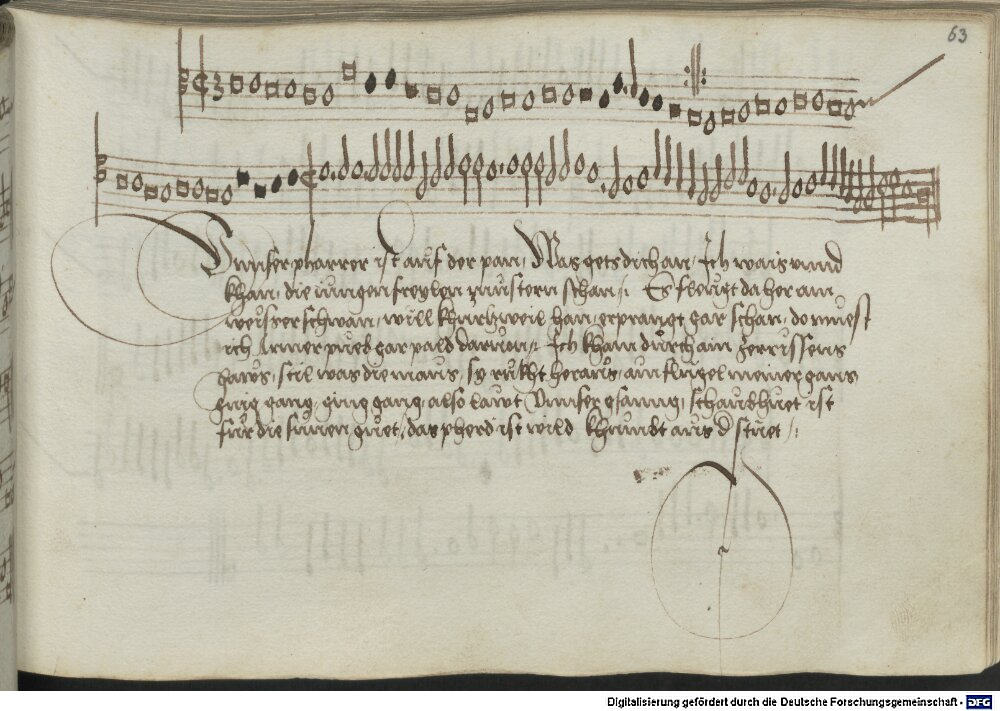 63
Unnser pharrer ist auf der pan, Was gets dich an, Ich wais unnd
khan, die iungen freylen zu ustern schan, Es fleugt daher ain
weisser schwan, will khurtzweil han, erprangt gar schan, do muest
ich armer pueb gar pald daruon, Ich kham durch ain zerrissens
haus, stil was die maus, sy rukht heraus, ain flugel meiner gans
ging gang, ging gang, also laut Unnser gsanng, schaubhuet ist
fur die sunnen guet, das pherd ist wild khumbt aus d stuet
Digitalisierung gefördert durch die Deutsche Forschungsgemeinschaft - DFG